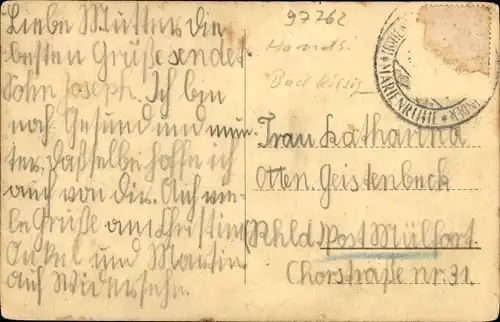 Liebe Mutter die
besten Grüße sendet
Sohn Joseph. Ich bin
noch Gesund und mun-
ter. Daßelbe hoffe ich
auch von dir. Auch vie-
le Grüße am Christine
Onkel und Martin
Auf Widersehn.
97762
Bad
MARIENRUHE
Frau Katharina
Otten. Geistenbeck
(Rhld) Post Mülfort.
Chorstraße nr. 31.